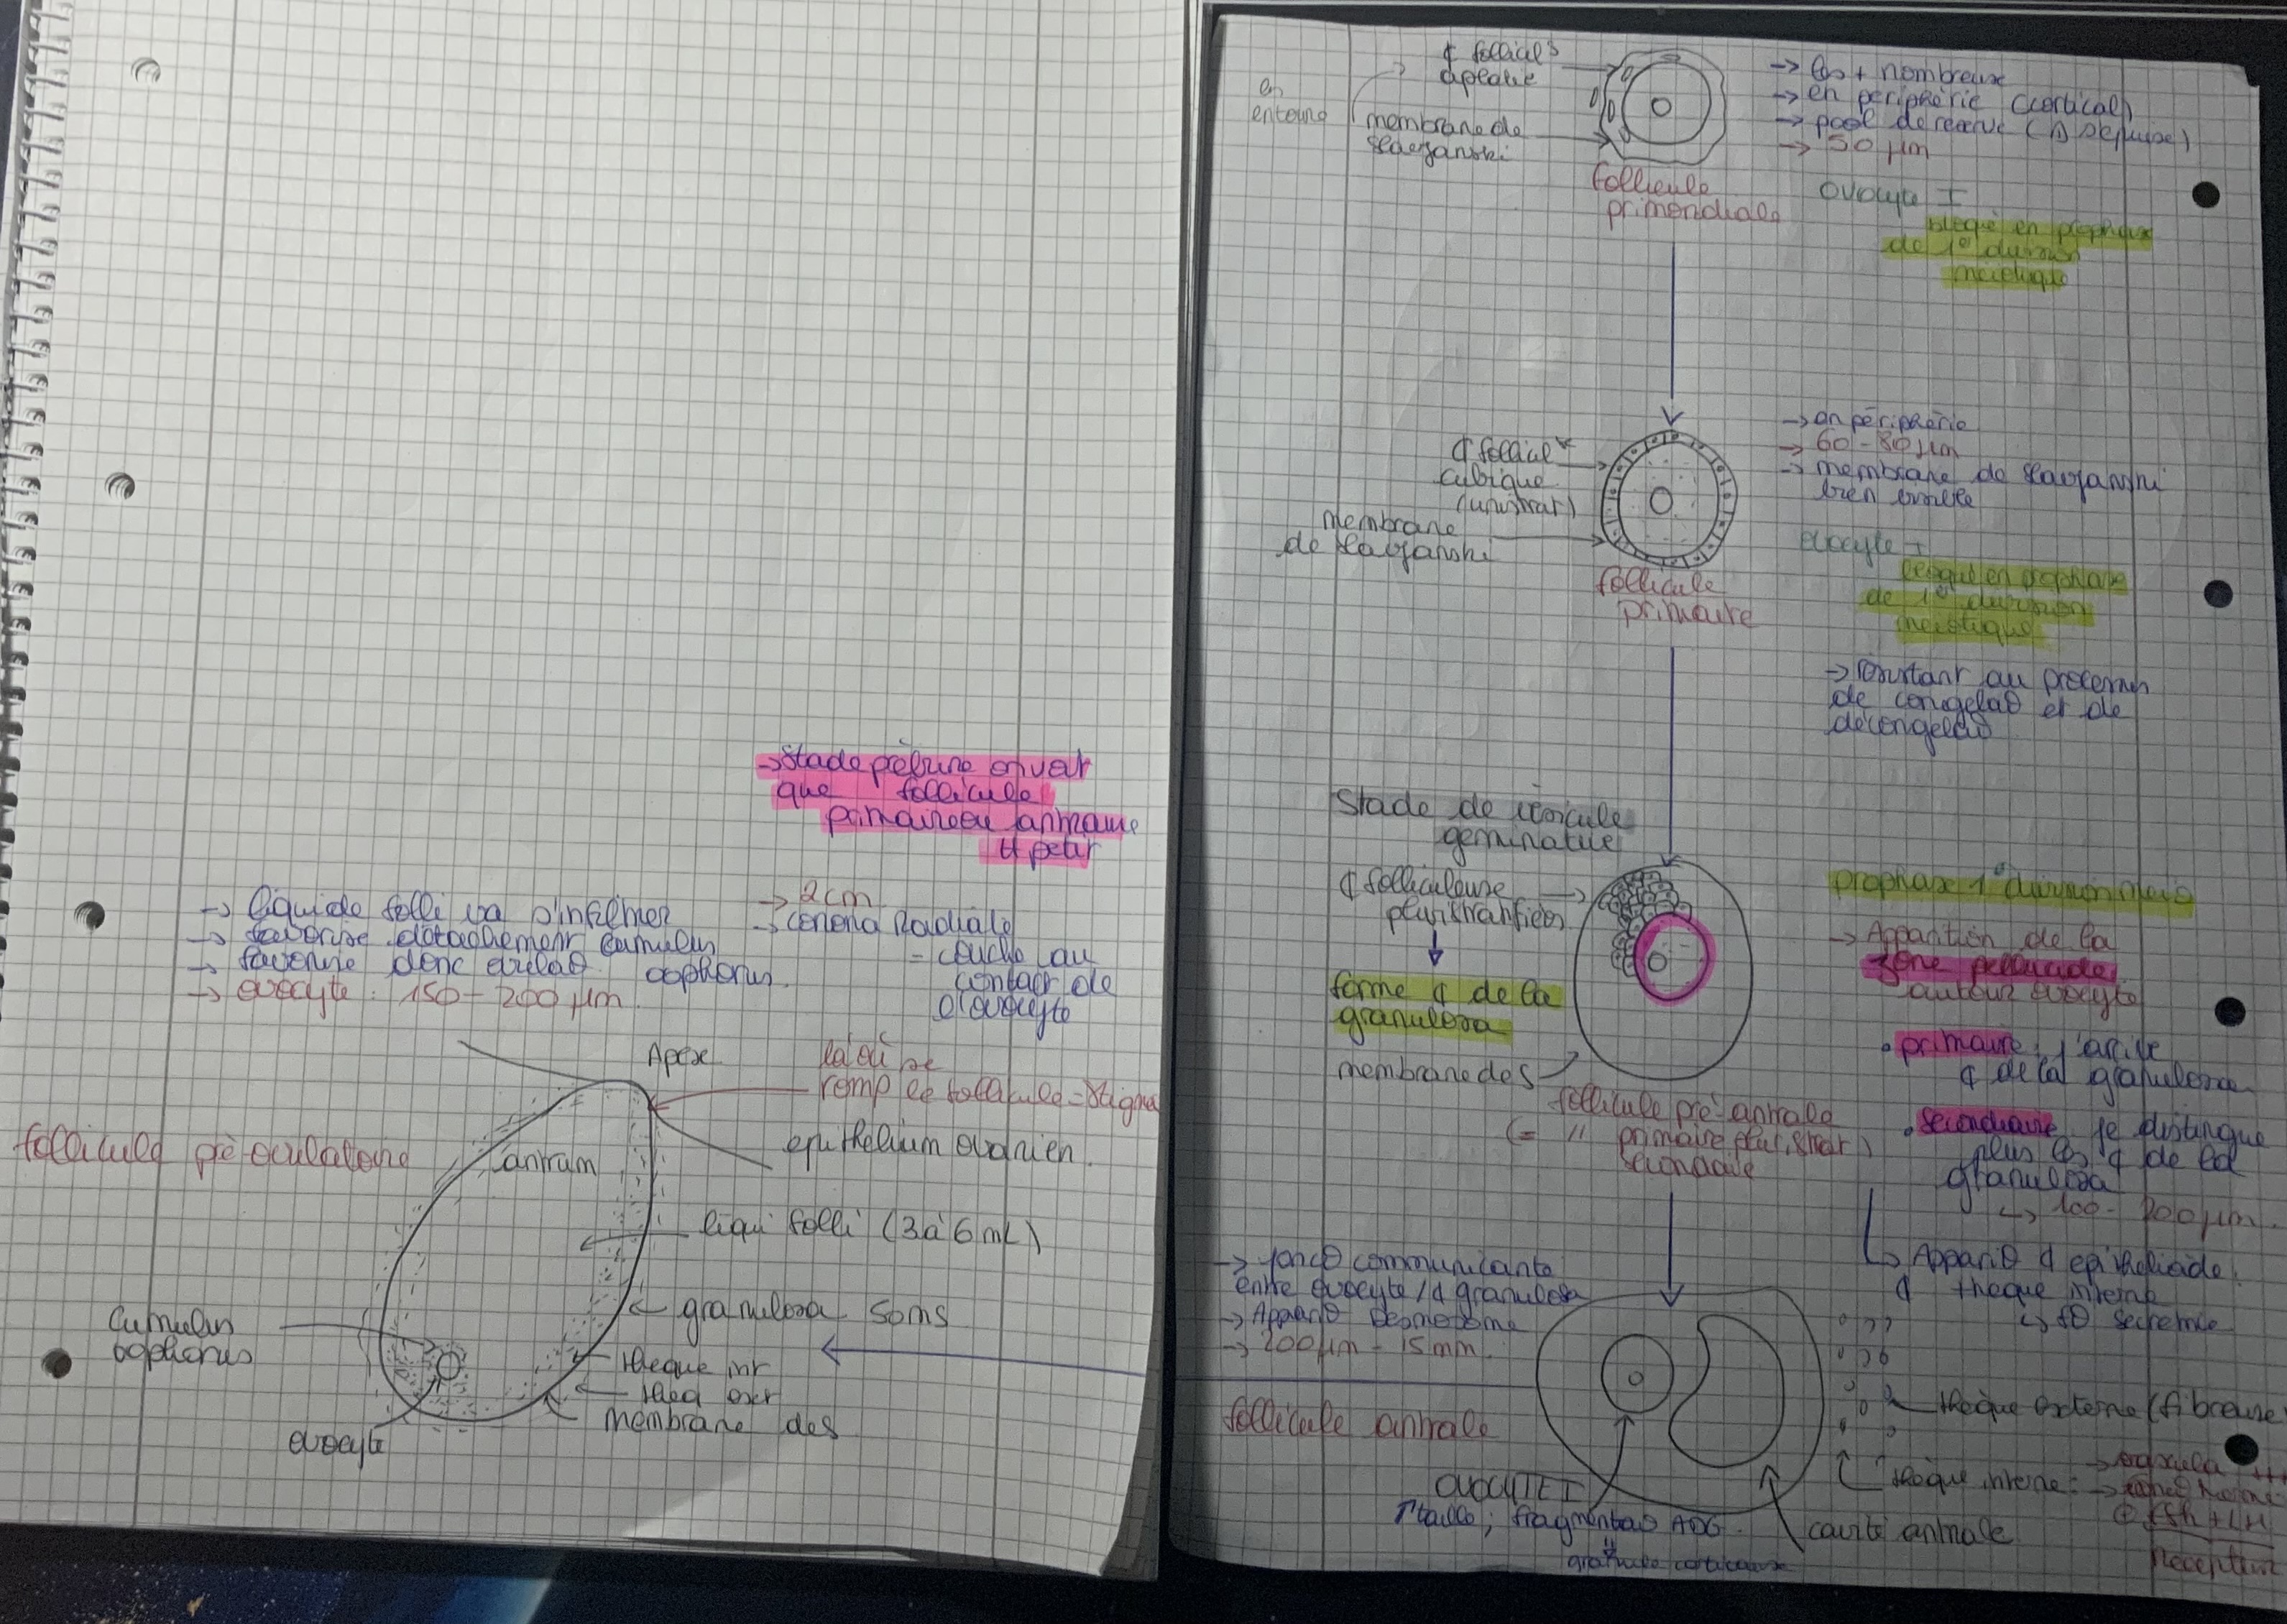 → Stade prépubère on voit
que follicule
primaire ou antraux
petit
→ liquide folli va s'infiltrer
→ favorise détachement cumulus
oophorus
→ favorise donc
→ ovocyte : 150 - 200 µm
→ 2cm
→ corona Radiale
- couche au
contact de
l'ovocyte
Apex
là où se
romp le follicule = Stigma
epithelium ovarien.
follicule pré ovulatoire
antrum
liqui folli (3 à 6 mL)
granulosa
Cumulus
oophorus
theque int
theq ext
membrane des
ovocyte
¢ follicul^s
aplatie
en
entoure
membrane de
Slavjanski
follicule
primordiale
→ les + nombreux
→ en périphérie (cortical)
→ pool de réserve
→ 50 µm
ovocyte I
bloqué en prophase
de 1° division
méiotique
¢ follicul^x
cubique
(unistrat)
membrane
de slavjanski
follicule
primaire
→ en périphérie
→ 60 - 80 µm
→ membrane de slavjanski
bien
ovocyte I
bloqué en prophase
de 1° division
méiotique
→ résistant au processus
de congelaθ et de
décongelaθ
Stade de vésicule
germinative
¢ folliculeuse
pluristratifiées
forme ¢ de la
granulosa
membrane des
follicule pré-antrale
(= " primaire pluristrat)
secondaire
prophase 1° division méio
→ Apparition de la
zone pellucide
autour ovocyte
• primaire : j'arrive
¢ de la granulosa
• secondaire : je distingue
plus les ¢ de la
granulosa
↳ 100 - 200 µm
↳ Appariθ ¢ epithélioïde
¢ theque interne
↳ fθ secretrice
→ joncθ communicante
entre ovocyte / ¢ granulosa
→ Appariθ Desmosome
→ 200 µm - 15 mm
follicule antrale
thèque externe (fibreuse
thèque interne :
FSH + LH
récepteur
OVOCYTE I
↑ taille ; fragmentaθ ADG
granule corticaux
cavité antrale